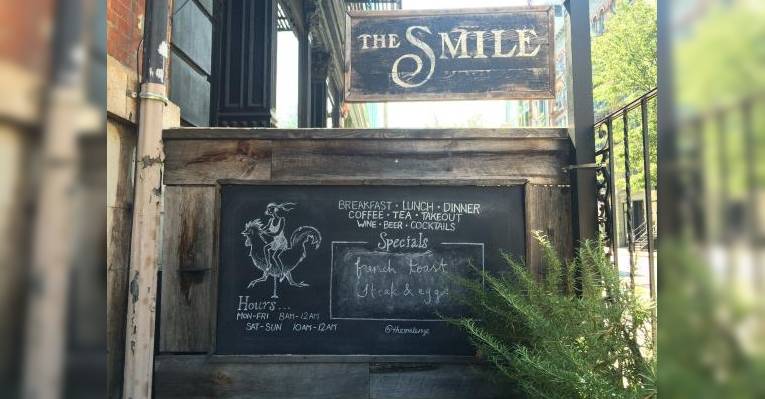 THE SMILE
BREAKFAST · LUNCH · DINNER
COFFEE · TEA · TAKEOUT
WINE · BEER · COCKTAILS
Specials
french toast
Steak & eggs
Hours...
MON-FRI 8AM-12AM
SAT-SUN 10AM-12AM
@thesmilenyc